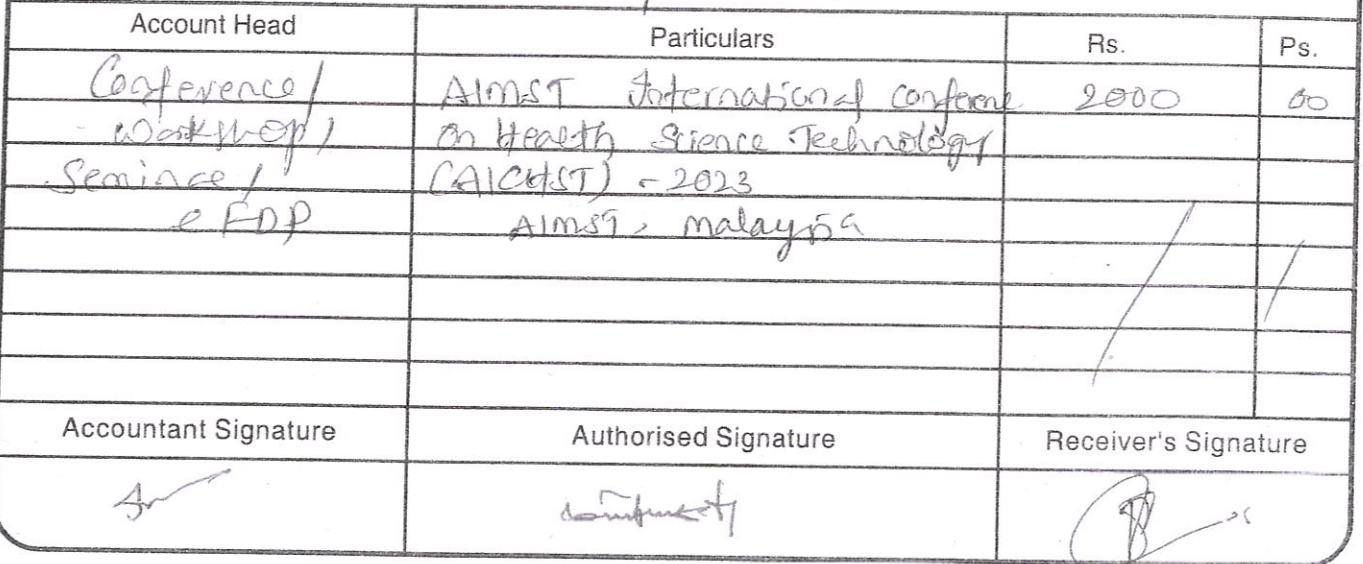 Account Head Particulars Rs. Ps.
Conference/ AIMST International Conferene 2000 00
Workshop/ on Health Science Technology
Seminar/ (AICHST) - 2023
e FDP AIMST, Malaysia
Accountant Signature Authorised Signature Receiver's Signature